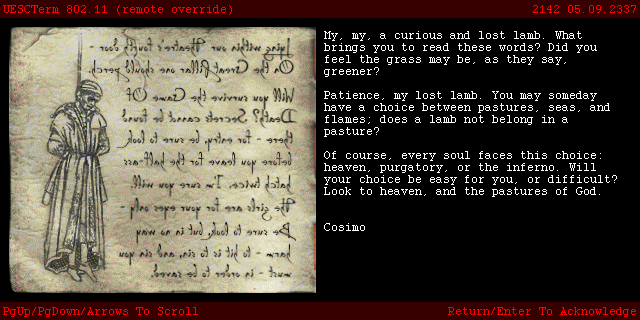 UESCTerm 802.11 (remote override)
2142 05.09.2337
Lying within our Theatre's fourth door -
On the Great Pillar one should perch.
Will you survive the Game Of
Death? Secrets cannot be found
there - for entry, be sure to look
before you leave for the half-ass
hatch twice. I'm sure you will.
The girls are for your eyes only -
Be sure to look, but in no way
harm - to hit is to sin, and sin you
must - in order to be saved.
My, my, a curious and lost lamb. What
brings you to read these words? Did you
feel the grass may be, as they say,
greener?
Patience, my lost lamb. You may someday
have a choice between pastures, seas, and
flames; does a lamb not belong in a
pasture?
Of course, every soul faces this choice:
heaven, purgatory, or the inferno. Will
your choice be easy for you, or difficult?
Look to heaven, and the pastures of God.
Cosimo
PgUp/PgDown/Arrows To Scroll
Return/Enter To Acknowledge